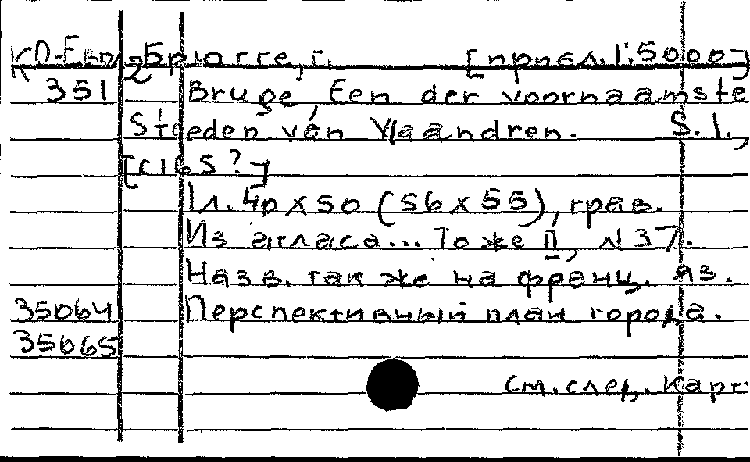 КО-Евр/2 Брюгге, г. [прибл. 1:5000]
351 Bruge, Een der voornaamste
Steeden van Vlaandren. S.l.,
[c165?]
1 л. 40x50 (56x55), грав.
Из атласа... То же II, N 37.
Назв. также на франц. яз.
35064 Перспективный план города.
35065
См. след. карт